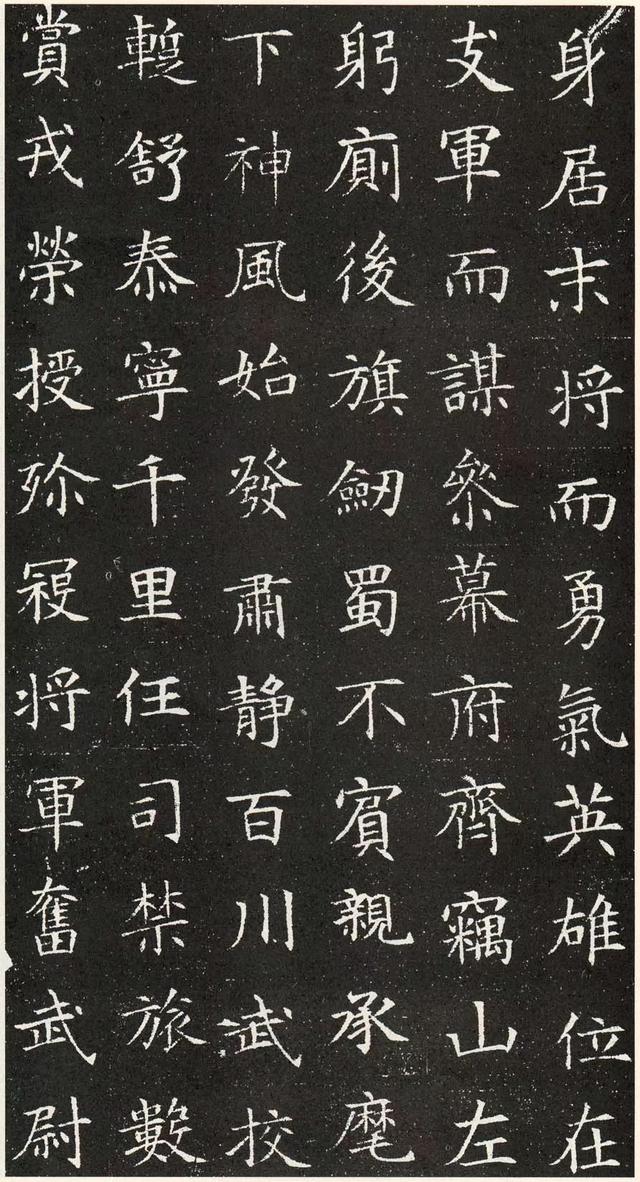 身居末将而勇氣英雄位在
支軍而謀叅幕府齊竊山左
躬廁後旗劒蜀不賓親承麾
下神風始發肅静百川武校
蹔舒泰寧千里任司禁旅數
賞戎榮授殄冦将軍奮武尉